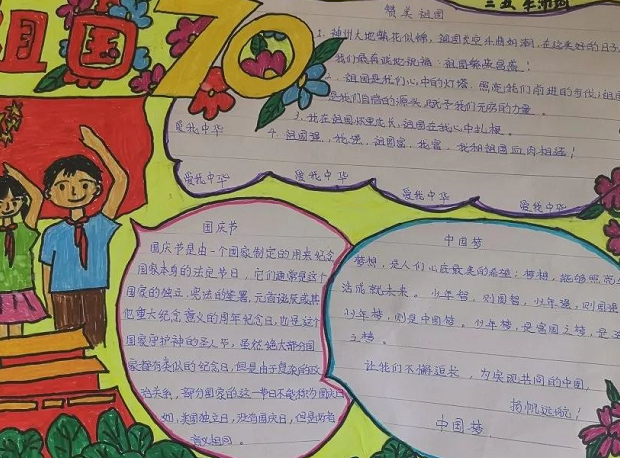 祖国70
三五 李沛園
赞美祖国
1. 神州大地繁花似锦，祖国长空乐曲如潮，在这美好的日子
我们最真诚地祝福：祖国繁荣昌盛！
2. 祖国是我们心中的灯塔，照亮我们前进的步伐；祖国
是我们自信的源头，赋予我们无穷的力量。
3. 我在祖国怀里成长，祖国在我心中扎根。
4. 祖国强，我强，祖国富，我富，我和祖国血肉相连！
爱我中华
爱我中华
爱我中华
爱我中华
爱我中华
国庆节
国庆节是由一个国家制定的用来纪念
国家本身的法定节日，它们通常是这个
国家的独立、宪法的签署、元首诞辰或其
他重大纪念意义的周年纪念日，也是这个
国家守护神的圣人节，虽然绝大部分国
家都有类似的纪念日，但是由于复杂的政
治关系，部分国家的这一节日不能称为国庆日
如，美国独立日，没有国庆日，但是两者
意义相同。
中国梦
梦想，是人们心底最美的希望；梦想，能够照亮生
活成就未来。少年智，则国智，少年强，则国强
少年梦，则是中国梦。少年梦，是富国之梦，是
之梦。
让我们不懈追求，为实现共同的中国，
扬帆远航！
中国梦